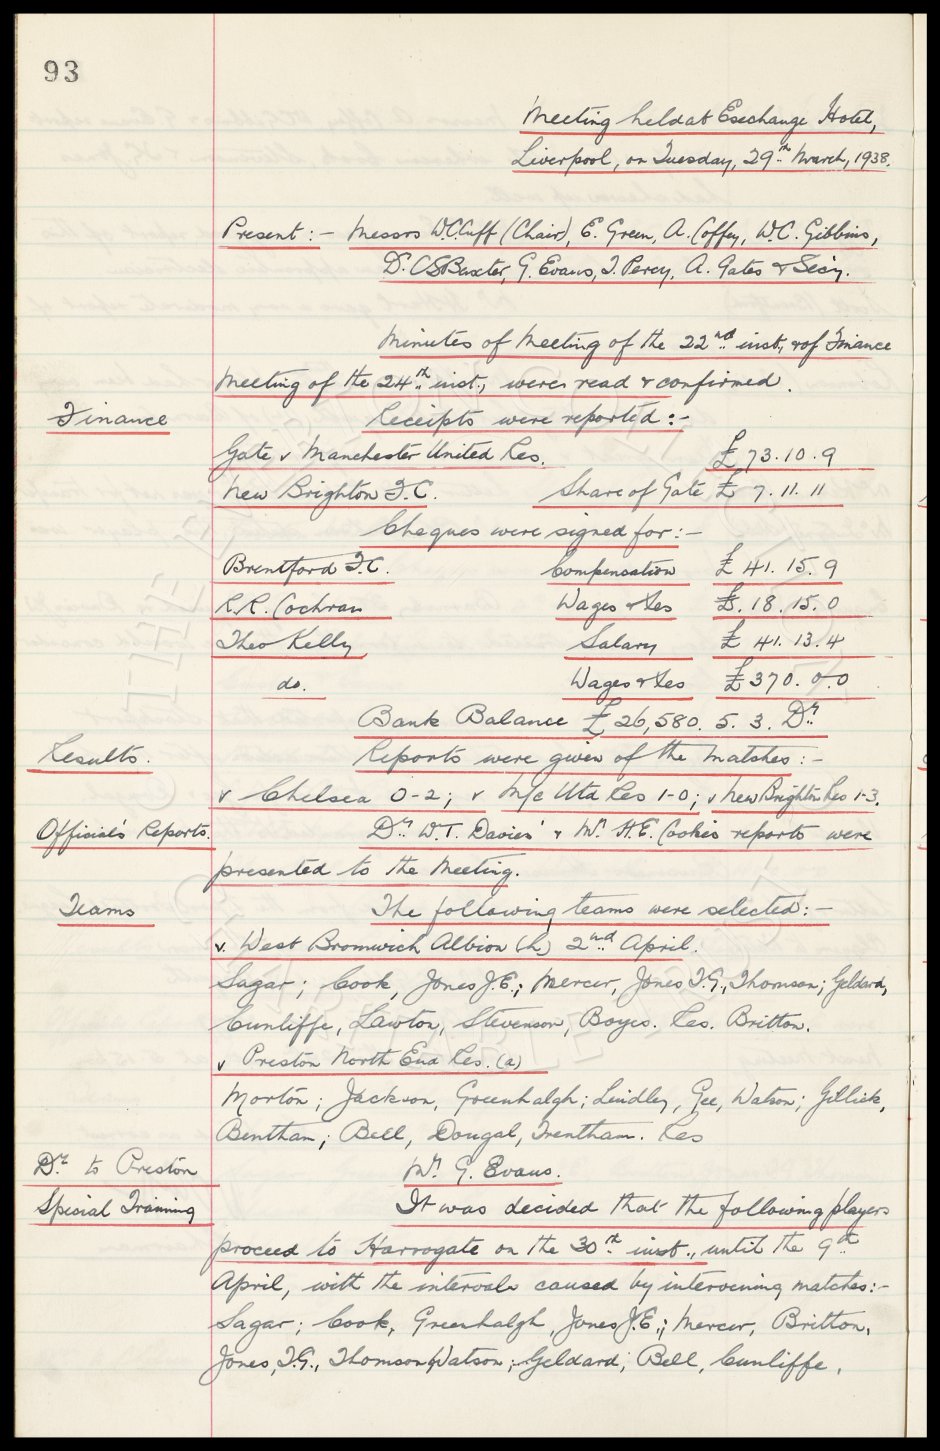 93
Meeting held at Exchange Hotel,
Liverpool, on Tuesday, 29th March, 1938.
Present :- Messrs W.C. Cuff (Chair), E. Green, A. Coffey, W.C. Gibbins,
Dr. C.S. Baxter, G. Evans, T. Percy, A. Gates & Secy.
Minutes of Meeting of the 22nd inst., & of Finance
Meeting of the 24th inst., were read & confirmed.
Finance Receipts were reported :-
Gate v Manchester United Res. £73.10.9
New Brighton F.C. Share of Gate £ 7. 11. 11
Cheques were signed for :-
Brentford F.C. Compensation £ 41. 15. 9
R.R. Cochran Wages &c £. 18. 15. 0
Theo Kelly Salary £ 41. 13. 4
do. Wages &c £370. 0. 0
Bank Balance £26,580. 5. 3. Dr.
Results. Reports were given of the matches :-
v Chelsea 0-2; v M/c Utd Res 1-0; v New Brighton Res 1-3.
Official's Reports. Dr. W.T. Davies' & Mr. H.E. Cooke's reports were
presented to the Meeting.
Teams The following teams were selected :-
v. West Bromwich Albion (h) 2nd April.
Sagar; Cook, Jones J.E.; Mercer, Jones T.G., Thomson; Geldard,
Cunliffe, Lawton, Stevenson, Boyes. Res. Britton.
v Preston North End Res. (a)
Morton; Jackson, Greenhalgh; Lindley, Gee, Watson; Gillick,
Bentham; Bell, Dougal, Trentham. Res
Dr. to Preston Mr. G. Evans.
Special Training It was decided that the following players
proceed to Harrogate on the 30th inst., until the 9th
April, with the intervals caused by intervening matches :-
Sagar; Cook, Greenhalgh, Jones J.E.; Mercer, Britton,
Jones, T.G., Thomson, Watson; Geldard, Bell, Cunliffe,